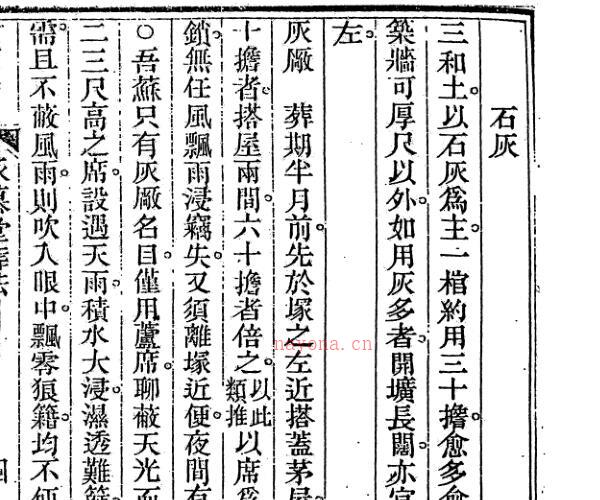 石灰
三和土。以石灰爲主。一棺約用三十擔。愈多愈
築牆可厚尺以外。如用灰多者。開壙長闊。亦宜
左。
灰廠 葬期半月前。先於塚之左近搭蓋茅屋
十擔者。搭屋兩間。六十擔者倍之。以此類推以席爲
鎖。無任風飄雨浸竊失。又須離塚近便。夜間有
○吾蘇只有灰廠名目。僅用蘆席。聊蔽天光。而
二三尺高之席。設遇天雨。積水大浸。濕透難篩
需。且不蔽風雨。則吹入眼中。飄零狼籍。均不便
nayona.cn